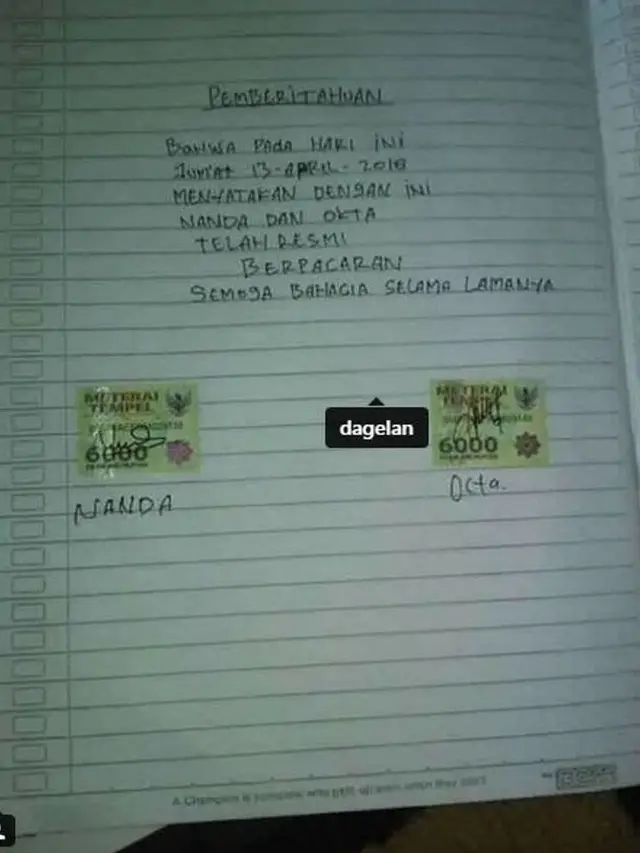 PEMBERITAHUAN
BAHWA PADA HARI INI
JUM'AT 13-APRIL-2018
MENYATAKAN DENGAN INI
NANDA DAN OKTA
TELAH RESMI
BERPACARAN
SEMOGA BAHAGIA SELAMA LAMANYA
METERAI
TEMPEL
6000
METERAI
TEMPEL
6000
dagelan
NANDA
Octa.
A Champion is someone who gets up even when they can't